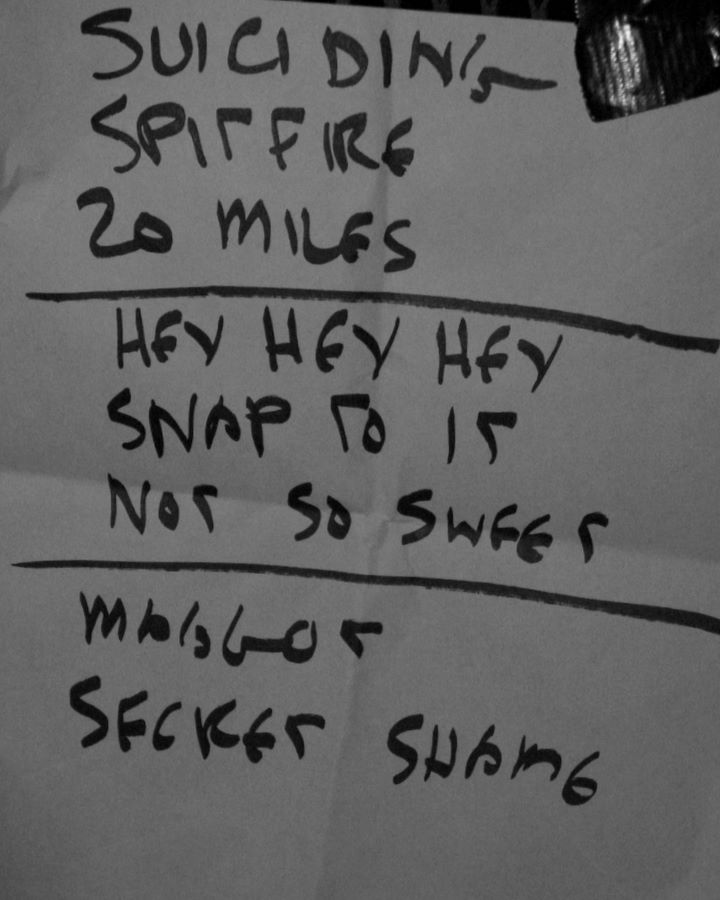 SUICIDING
SPITFIRE
20 MILES
HEY HEY HEY
SNAP TO IT
NOT SO SWEET
MAGGOT
SECRET SHAME